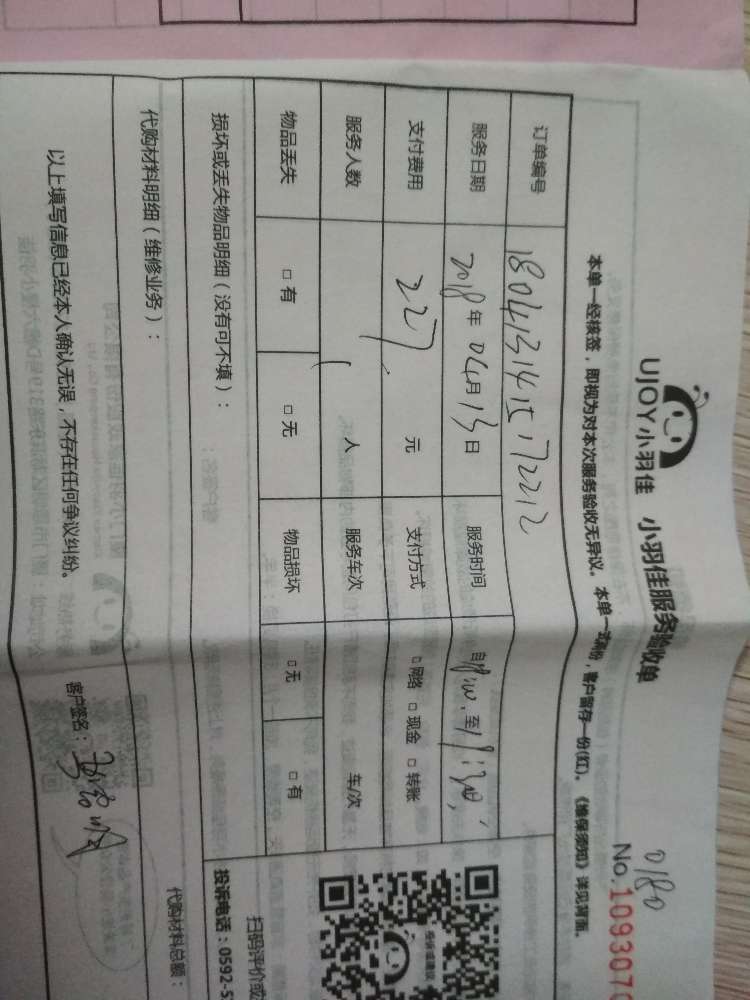 UJOY小羽佳 小羽佳服务验收单
0180
No.109307
本单一经核签，即视为对本次服务验收无异议。本单一式两份，客户留存一份(红)。《维保须知》详见背面。
订单编号 1804131415172212
服务日期 2018年04月13日 服务时间
支付费用 227元 支付方式 □网络 □现金 □转账
服务人数 人 服务车次 车/次
物品丢失 □有 □无 物品损坏 □无 □有
损坏或丢失物品明细（没有可不填）：
扫码评价或
投诉电话：0592-5
代购材料明细（维修业务）：
代购材料总额：
以上填写信息已经本人确认无误，不存在任何争议纠纷。
客户签名：